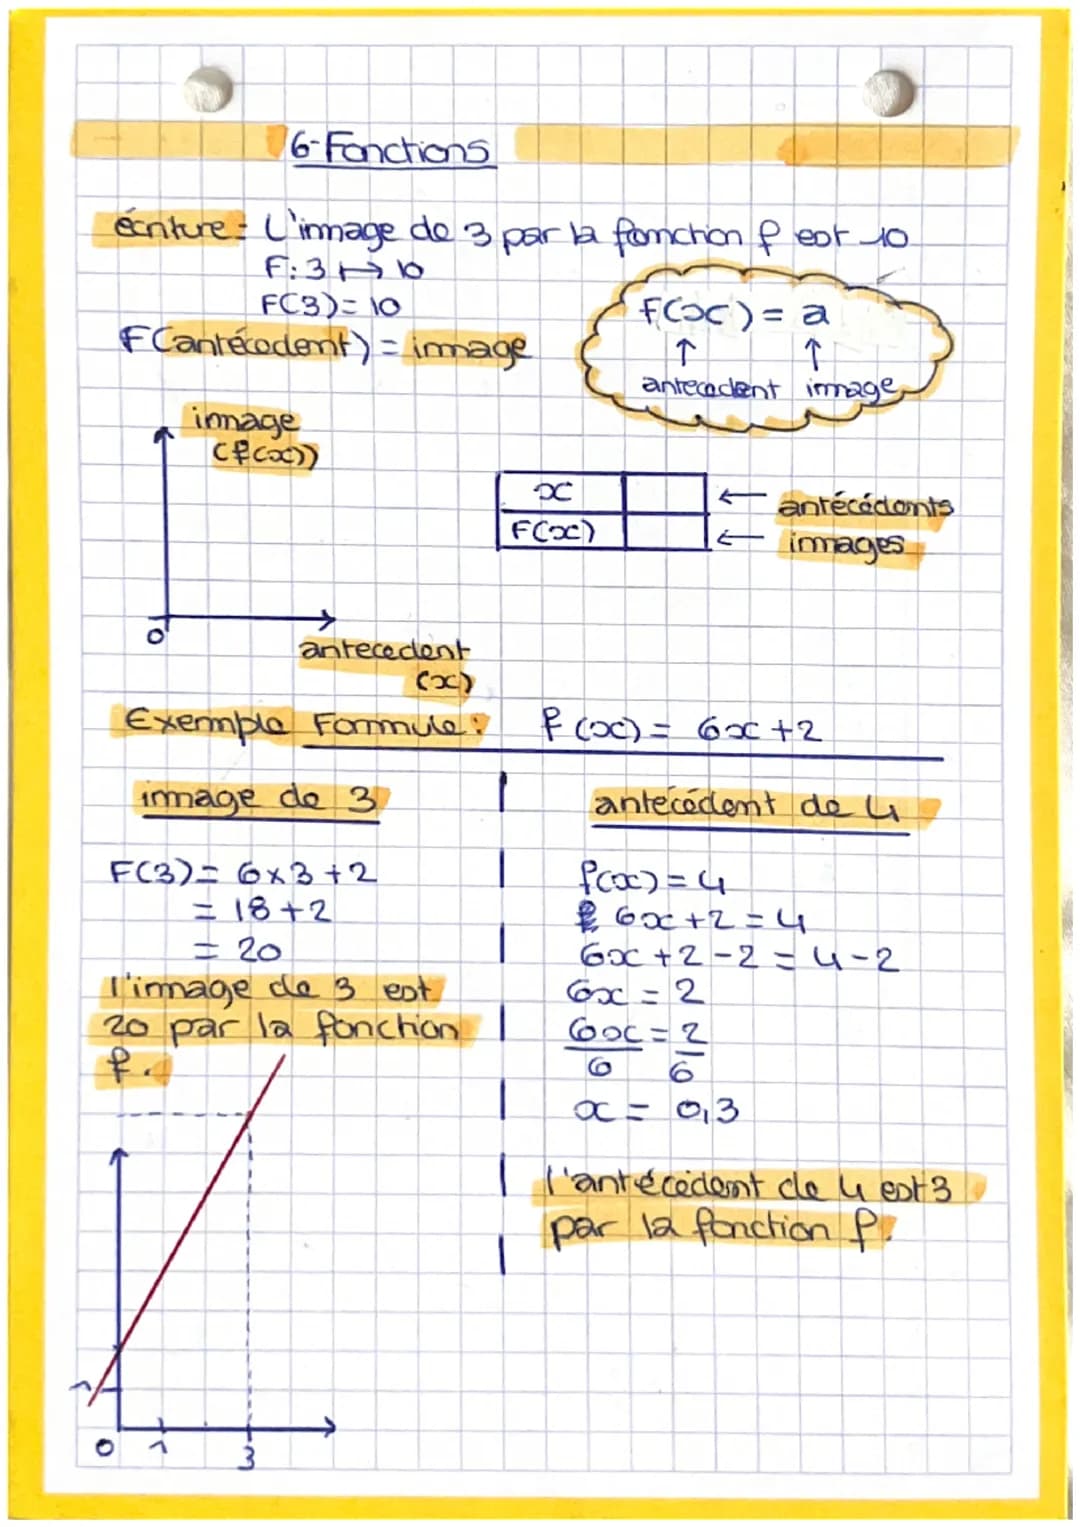 6-Fonctions
écriture: L'image de 3 par la fonction f est 10
F: 3 ↦ 10
F(3)= 10
F(antécédent) = image
f(x) = a
↑ ↑
antecedent image
image
(f(x))
x
F(x)
← antécédents
← images
0
antecedent
(x)
Exemple Formule: f(x) = 6x+2
image de 3
F(3)= 6x3+2
= 18+2
= 20
l'image de 3 est
20 par la fonction
f.
1
0 1 3
antécédent de 4
f(x)=4
6x+2=4
6x+2-2=4-2
6x=2
6x=2
6 6
x= 0,3
l'antécédent de 4 est 3
par la fonction f.